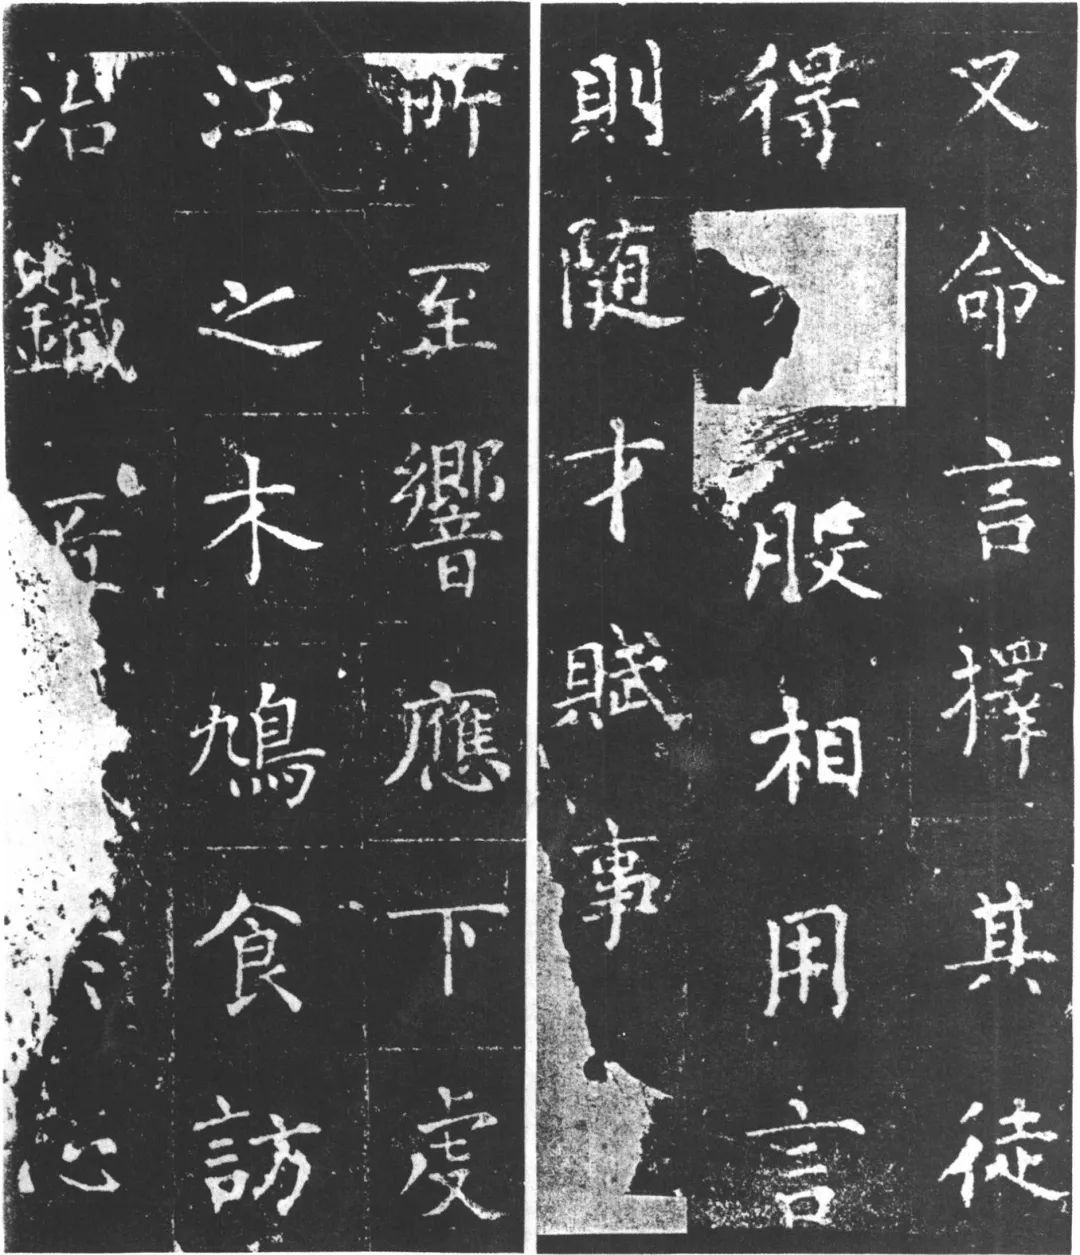 又命言擇其徒
得股相用言
則随才賦事
所至響應下虔
江之木鳩食訪
冶鐵
心